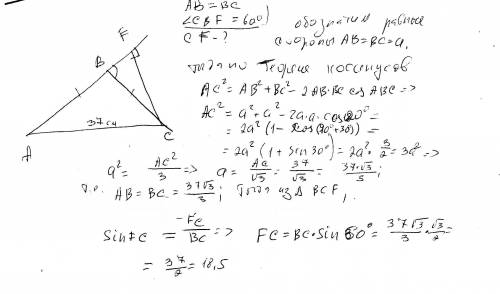 AB = BC
∠CBF = 60°
CF - ?
обозначим равные
стороны AB=BC=a.
тогда по теореме косинусов
AC² = AB² + BC² - 2AB·BC cos ABC =>
AC² = a² + a² - 2a·a·cos120° =
= 2a² (1 - cos(90°+30)) =
= 2a² (1 + sin 30°) = 2a² · 3/2 = 3a² =>
a² = AC²/3 => a = AC/√3 = 37/√3 = 37·√3/3;
т.о. AB = BC = 37√3/3; тогда из Δ BCF,
sin = FC/BC => FC = BC·sin 60° = 37√3/3 · √3/2 =
= 37/2 = 18,5
F
B
37 см
A
C